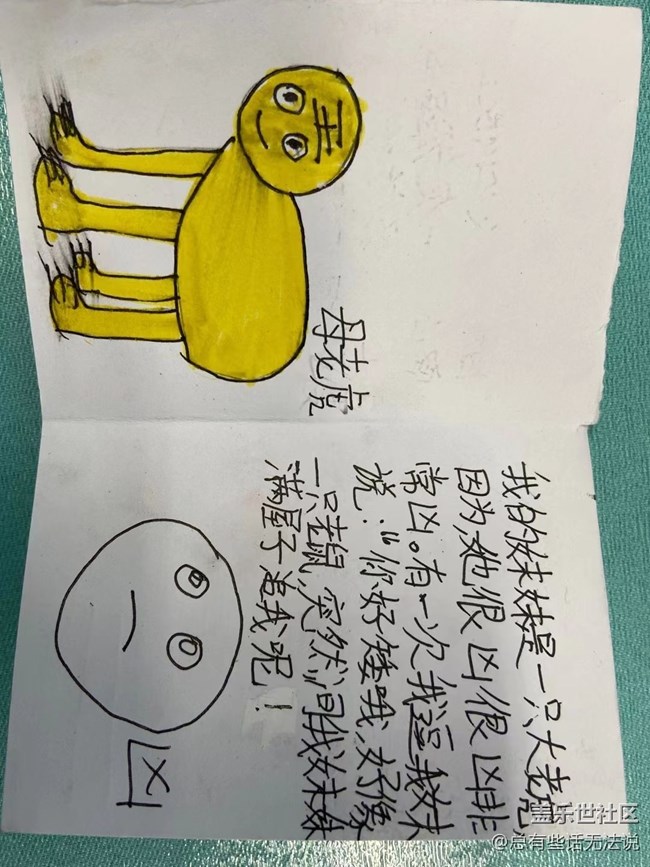 王
母老虎
我的妹妹是一只大老虎
因为她很凶很凶非
常凶。有一次我逗我妹
说:“你好矮哦,好像
一只老鼠,突然间我妹妹
满屋子追我吧!
凶
盖乐世社区
@总有些话无法说